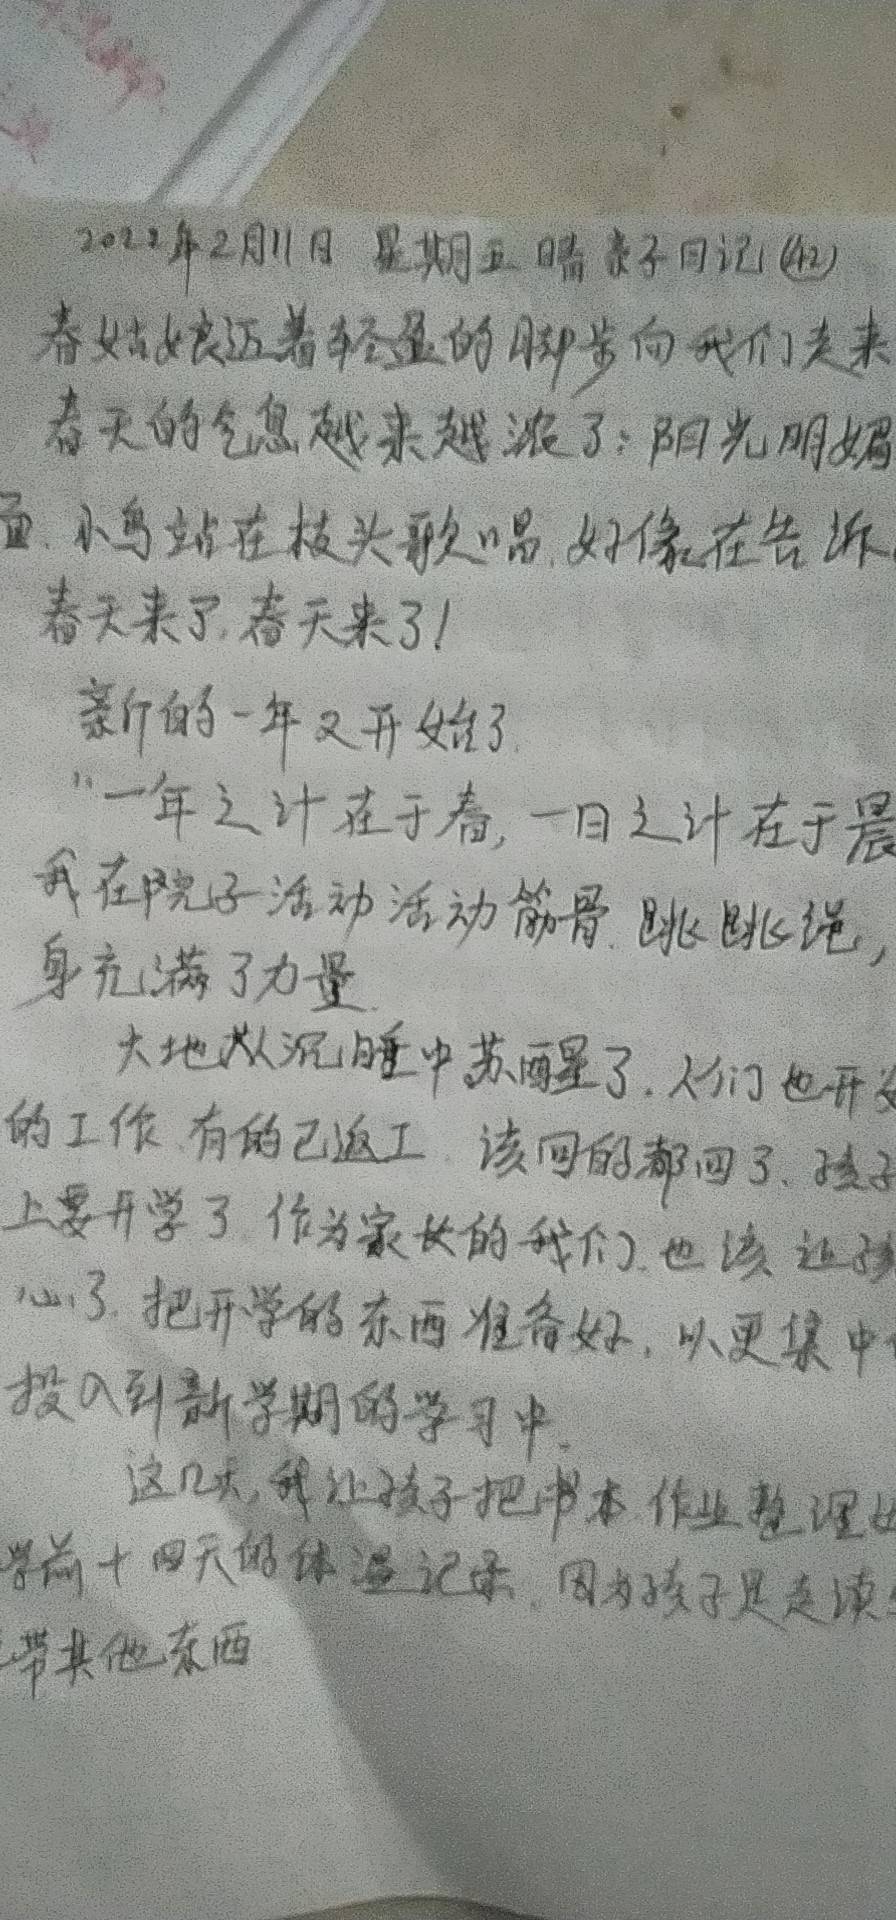 2022年2月11日 星期五 晴 亲子日记(42)
春姑娘迈着轻盈的脚步向我们走来
春天的气息越来越浓了:阳光明媚
面.小鸟站在枝头歌唱.好像在告诉
春天来了.春天来了!
新的一年又开始了.
"一年之计在于春,一日之计在于晨
我在院子活动活动筋骨.跳跳绳,
身充满了力量.
大地从沉睡中苏醒了.人们也开始
的工作.有的已返工.该回的都回了.孩子
上要开学了.作为家长的我们.也该让孩
心了.把开学的东西准备好.以更集中
投入到新学期的学习中.
这几天,我让孩子把书本.作业整理好
学前十四天的体温记录.因为孩子是走读
带其他东西